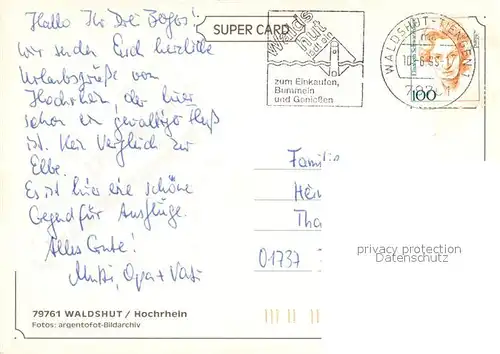 Hallo Ihr Drei
SUPER CARD
wir senden Euch herzliche
Urlaubsgrüße vom
Hochrhein, der hier
schon ein gewaltiger Fluß
ist. Kein Vergleich zur
Elbe.
Es ist hier eine schöne
Gegend für Ausflüge.
Alles Gute!
Mutti, Opa + Vati
79761 WALDSHUT / Hochrhein
Fotos: argentofot-Bildarchiv
Waldshut
lädt ein
zum Einkaufen,
Bummeln
und Genießen
WALDSHUT-TIENGEN 1
100
Famili
Hei
Tha
01737
privacy protection
Datenschutz